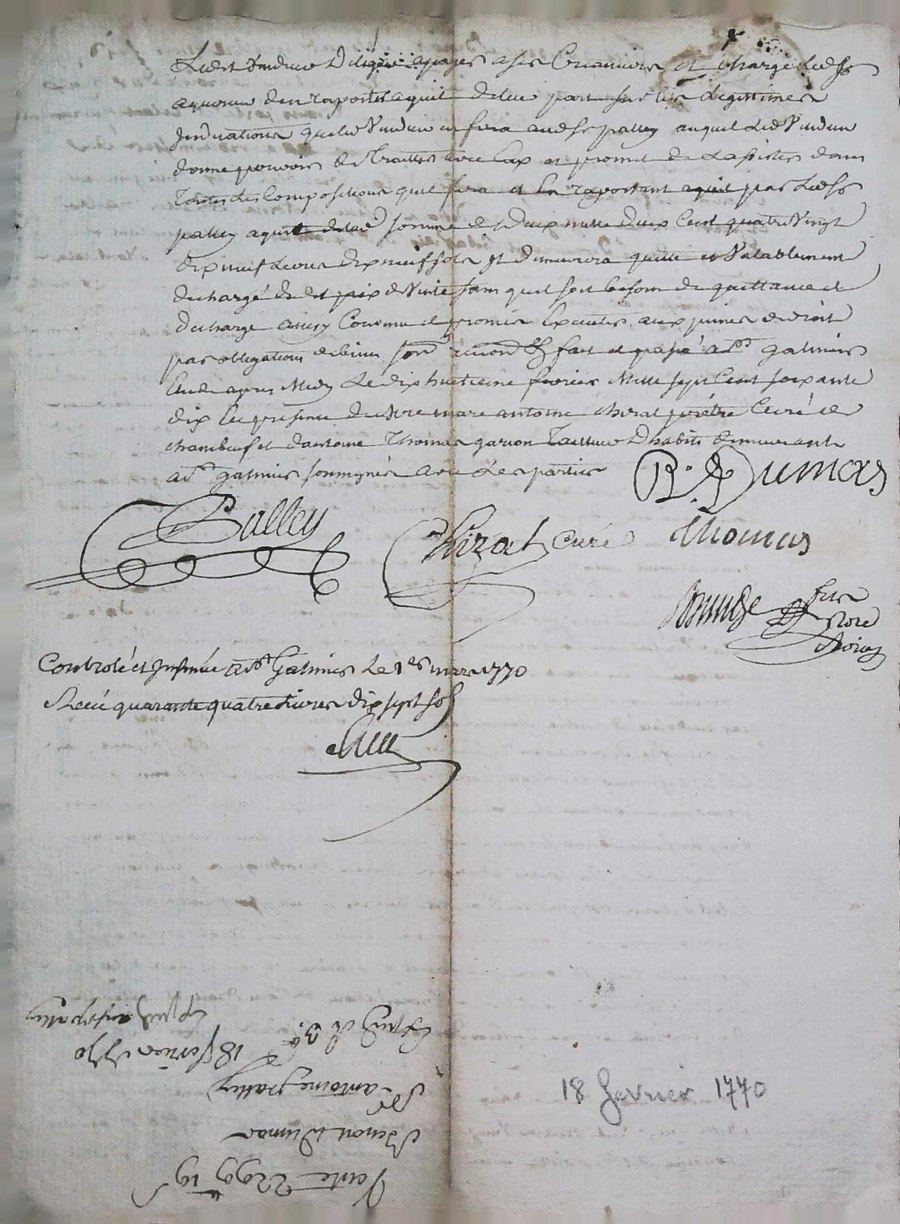 Ledit Vendeur délégué a payer a ses Creanciers et charge ledsr
aquerir des raportes aquit delad part sur les Legitimes
Indications que led Vendeur en fera audsr palley auquel Led Vendeur
donne pouvoir de Traitter avec Eux et promet de Lassister dans
Toutes les Compositions quil fera et En raportant aquit par Ledsr
palley aquit delad somme de Deux mille Deux Cent quatre Vingt
dix neuf Livres dix neuf sols Il demeurera quitte et Valablement
dechargé dud prix de Vente sans quil soit besoin de quittance et
decharge ainsy Convenu et promis Executer aux peines de droit
par obligations de biens fait et passé a st galmier
Etude apres Midy Le dix huitieme fevrier Mille sept Cent soixante
dix En presence de Mre marc antoine chizat prêtre Curé de
chambeuf et dantoine Thomas garcon Tailleur D habits demeurant
a st galmier soussignés avec Les parties
B. Dumas
Palley
Chizat Curé
Thomas
nore
Roial
Controlé et Insinué a st Galmier Le 1er mars 1770
Recu quarante quatre Livres dix sept sols
18 fevrier 1770
Sr antoine palley
Benoit Dumas
Vente 2299 19s
18 fevrier 1770